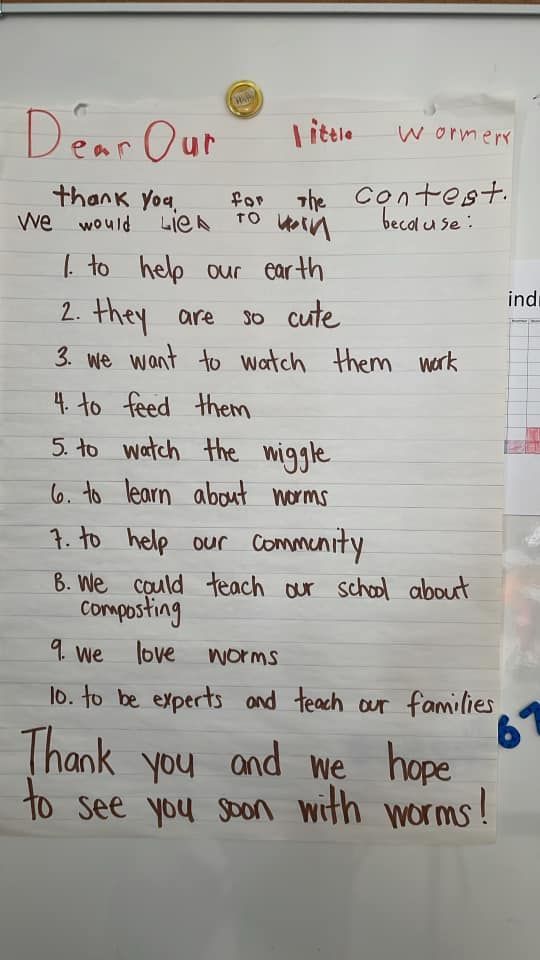 Dear Our little wormers
thank you for the contest.
we would liek to win becaluse:
1. to help our earth
2. they are so cute
3. we want to watch them work
4. to feed them
5. to watch the wiggle
6. to learn about worms
7. to help our community
8. We could teach our school about
composting
9. we love worms
10. to be experts and teach our families
Thank you and we hope
to see you soon with worms!
ind
67